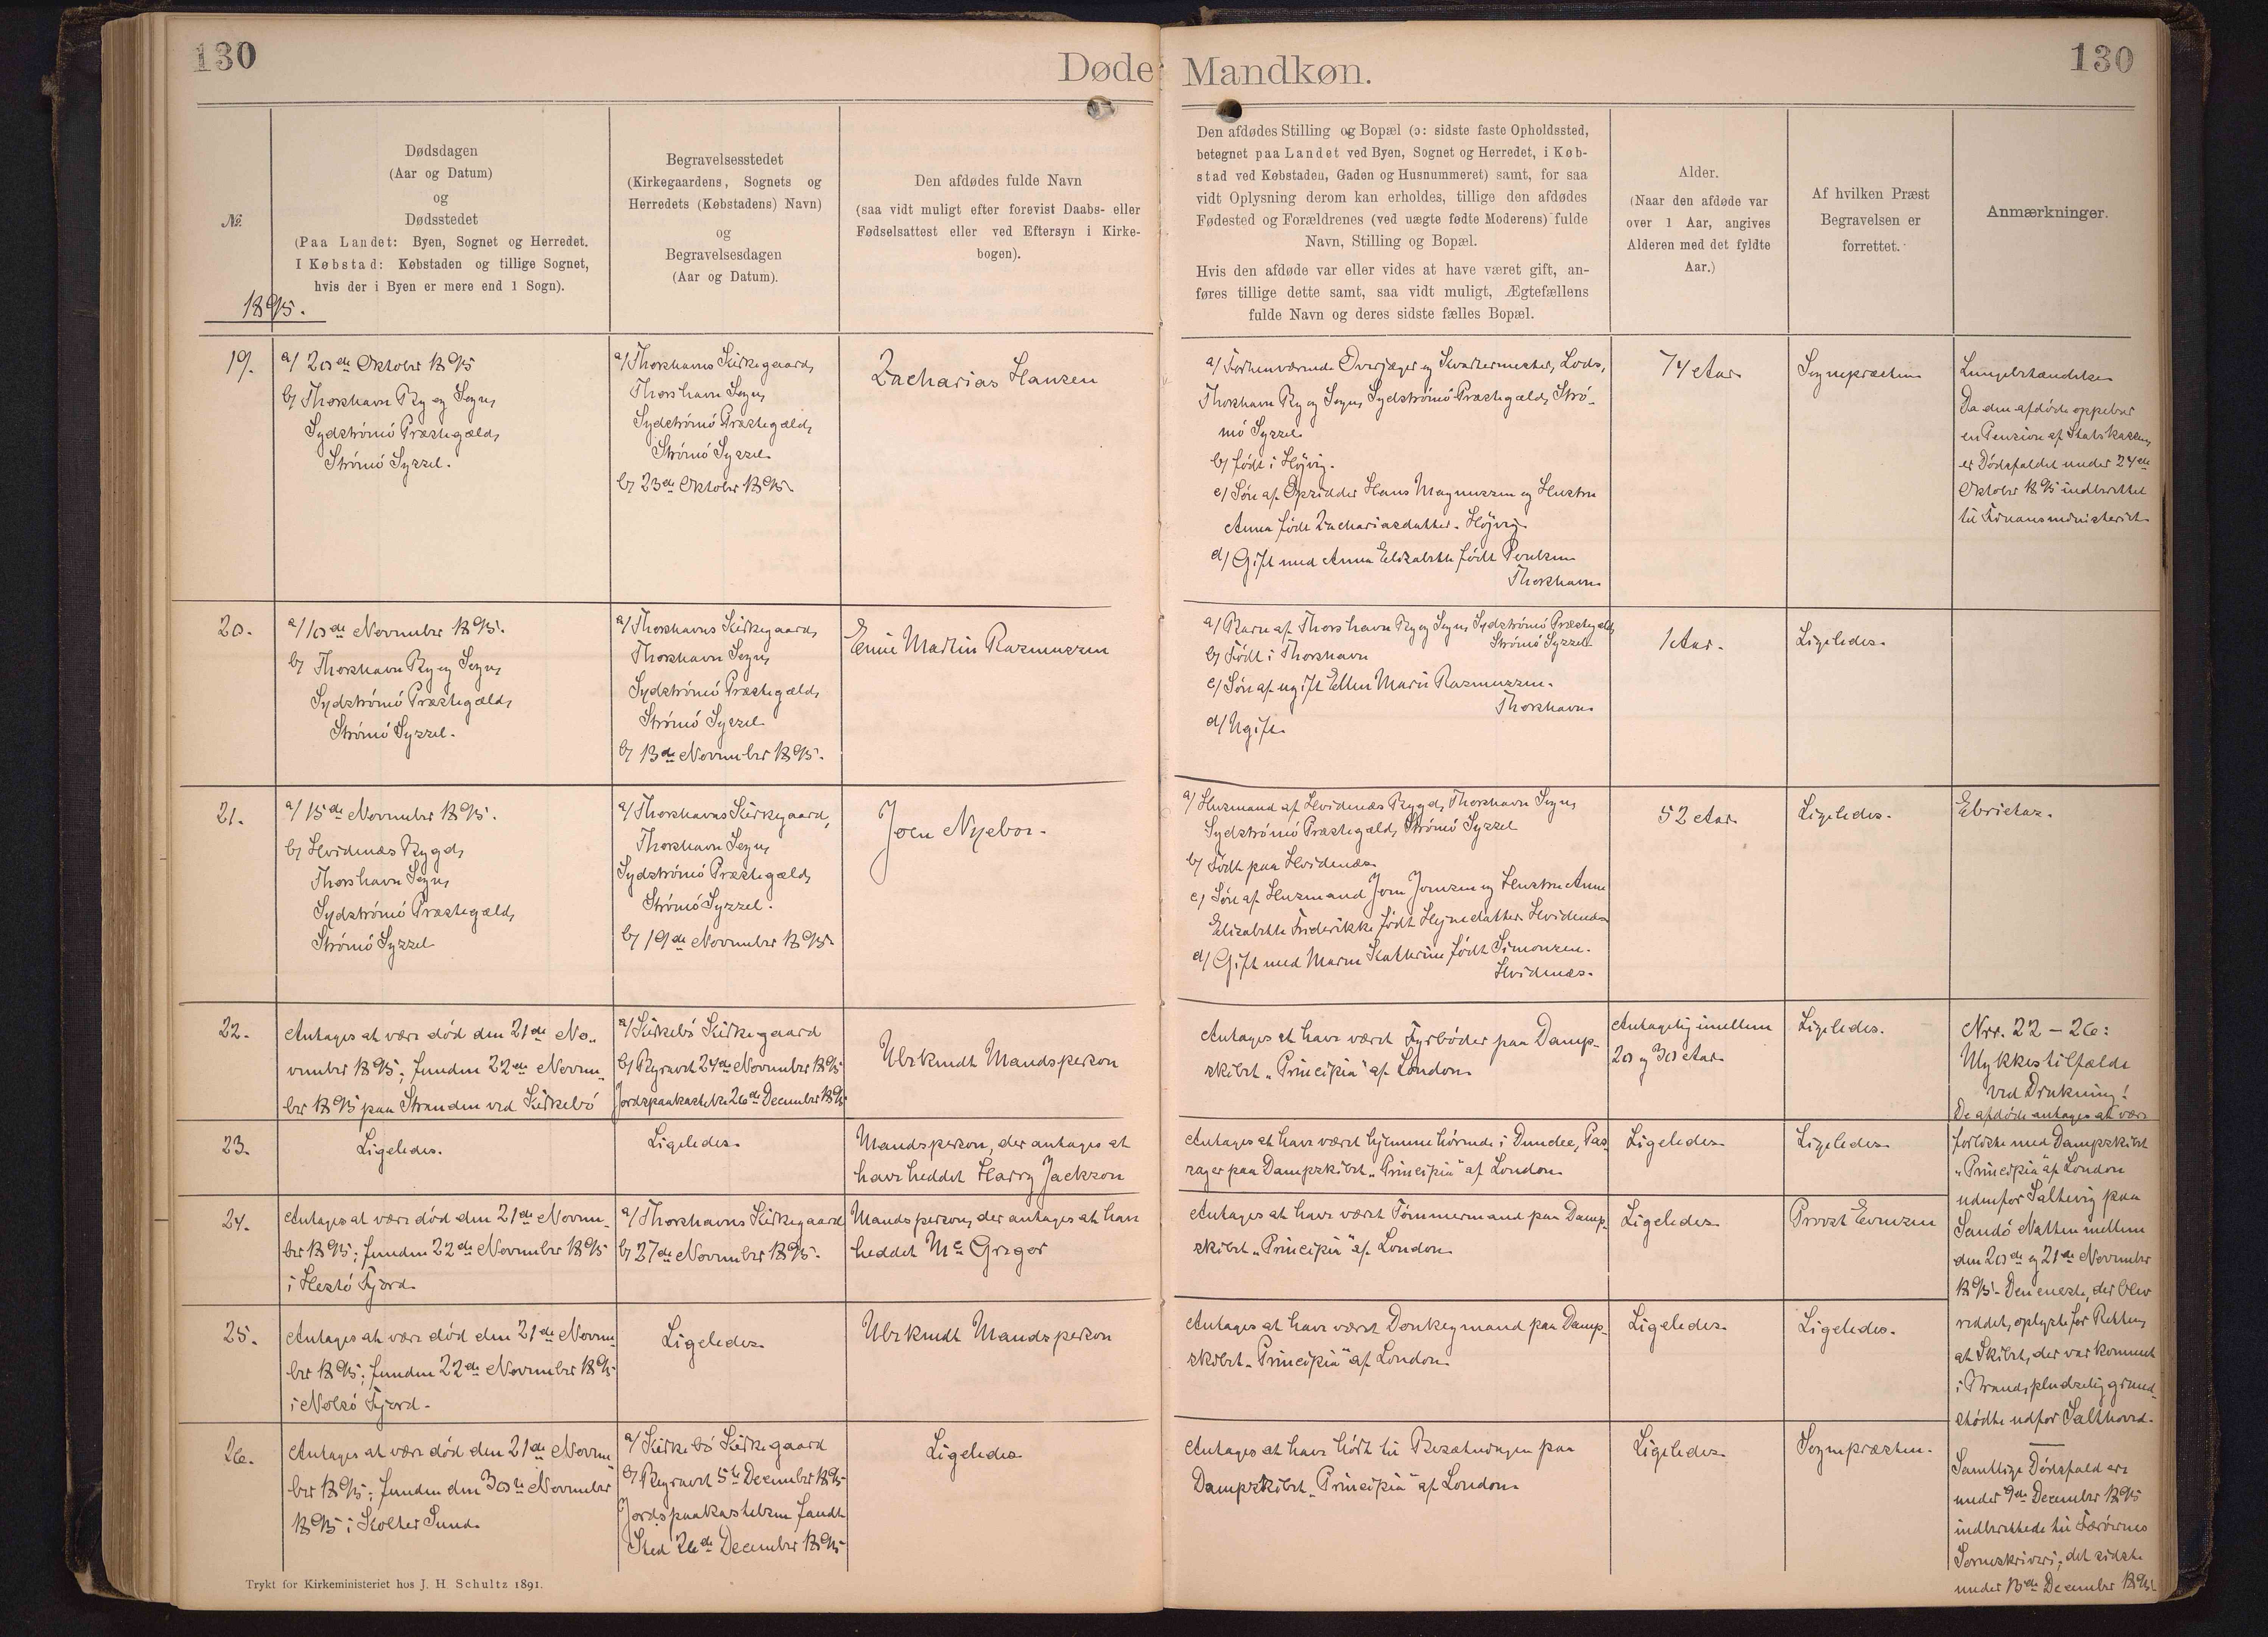 130
Døde Mandkøn.
130
№
Dødsdagen
(Aar og Datum)
og
Dødsstedet
(Paa Landet: Byen, Sognet og Herredet.
I Købstad: Købstaden og tillige Sognet,
hvis der i Byen er mere end 1 Sogn).
Begravelsesstedet
(Kirkegaardens, Sognets og
Herredets (Købstadens) Navn)
og
Begravelsesdagen
(Aar og Datum).
Den afdødes fulde Navn
(saa vidt muligt efter forevist Daabs- eller
Fødselsattest eller ved Eftersyn i Kirke-
bogen).
Den afdødes Stilling og Bopæl (ɔ: sidste faste Opholdssted,
betegnet paa Landet ved Byen, Sognet og Herredet, i Køb-
stad ved Købstaden, Gaden og Husnummeret) samt, for saa
vidt Oplysning derom kan erholdes, tillige den afdødes
Fødested og Forældrenes (ved uægte fødte Moderens) fulde
Navn, Stilling og Bopæl.
Hvis den afdøde var eller vides at have været gift, an-
føres tillige dette samt, saa vidt muligt, Ægtefællens
fulde Navn og deres sidste fælles Bopæl.
Alder.
(Naar den afdøde var
over 1 Aar, angives
Alderen med det fyldte
Aar.)
Af hvilken Præst
Begravelsen er
forrettet.
Anmærkninger.
1895.
19.
a/ 20de Oktober 1895
b/ Thorshavn By og Sogn,
Sydströmö Præstegæld,
Strömö Syssel.
a/ Thorshavns Kirkegaard,
Thorshavn Sogn,
Sydströmö Præstegæld,
Strömö Syssel.
b/ 23de Oktober 1895.
Zacharias Hansen
a/ Forhenværende Overjæger og Kvartermester, Lods,
Thorshavn By og Sogn, Sydströmö Præstegæld, Strö-
mö Syssel.
b/ født i Höjvig.
c/ Søn af Opsidder Hans Magnussen og Hustru
Anna født Zachariasdatter. Höjvig.
d/ Gift med Anna Elisabeth født Poulsen
Thorshavn
74 Aar
Sognepræsten
Lungebetændelse
Da den afdøde oppebar
en Pension af Statskassen,
er Dødsfaldet under 24de
Oktober 1895 indberettet
til Finansministeriet.
20.
a/ 10de November 1895.
b/ Thorshavn By og Sogn,
Sydströmö Præstegæld,
Strömö Syssel.
a/ Thorshavns Kirkegaard,
Thorshavn Sogn,
Sydströmö Præstegæld,
Strömö Syssel
b/ 13de November 1895.
Martin Rasmussen
a/ Barn af Thorshavn By og Sogn, Sydströmö Præstegæld,
Strömö Syssel.
b/ Født i Thorshavn
c/ Søn af ugift Ellen Marie Rasmussen.
Thorshavn
d/ Ugift.
1 Aar.
Ligeledes.
21.
a/ 15de November 1895.
b/ Hvidenæs Bygd,
Thorshavn Sogn,
Sydströmö Præstegæld,
Strömö Syssel
a/ Thorshavns Kirkegaard,
Thorshavn Sogn,
Sydströmö Præstegæld,
Strömö Syssel.
b/ 19de November 1895.
Joen Nyebor.
a/ Husmand af Hvidenæs Bygd, Thorshavn Sogn,
Sydströmö Præstegæld, Strömö Syssel
b/ Født paa Hvidenæs
c/ Søn af Husmand Joen Joensen og Hustru Anne
Elisabeth Friderikke født Hejnedatter. Hvidenæs
d/ Gift med Maren Kathrine født Simonsen.
Hvidenæs.
52 Aar
Ligeledes.
Ebrietas.
22.
Antages at være død den 21de No-
vember 1895; funden 22de Novem-
ber 1895 paa Stranden ved Kirkebö
a/ Kirkebö Kirkegaard
b/ Begravet 24de November 1895
Jordspaakastelse 26de December 1895
Ubekendt Mandsperson
Antages at have været Fyrbøder paa Damp-
skibet „Principia“ af London
Antagelig imellem
20 og 30 Aar
Ligeledes.
Nrr. 22 – 26:
Ulykkestilfælde
ved Drukning!
De afdøde antages at være
forliste med Dampskibet
„Principia“ af London
udenfor Saltevig paa
Sandö Natten mellem
den 20de og 21de November
1895. Den eneste, der blev
reddet, oplyste for Retten,
at Skibet, der var kommet
i Brand, pludselig grund-
stødte udfor Salthoved.
23.
Ligeledes.
Ligeledes.
Mandsperson, der antages at
have heddet Harry Jackson
Antages at have været hjemmehørende i Dundee, Pas-
sager paa Dampskibet „Principia“ af London
Ligeledes
Ligeledes
24.
Antages at være død den 21de Novem-
ber 1895; funden 22de November 1895
i Hestö Fjord.
a/ Thorshavns Kirkegaard
b/ 27de November 1895.
Mandsperson, der antages at have
heddet Mc Gregor
Antages at have været Tömmermand paa Damp-
skibet „Principia“ af London
Ligeledes
Provst Evensen
25.
Antages at være død den 21de Novem-
ber 1895; funden 22de November 1895
i Nolsö Fjord.
Ligeledes
Ubekendt Mandsperson
Antages at have været Donkeymand paa Damp-
skibet „Principia“ af London
Ligeledes.
Ligeledes.
26.
Antages at være død den 21de Novem-
ber 1895; funden den 30te November
1895 i Kolter Sund.
a/ Kirkebö Kirkegaard
b/ Begravet 5te December 1895
Jordspaakastelsen fandt
Sted 26de December 1895
Ligeledes
Antages at have hørt til Besætningen paa
Dampskibet „Principia“ af London
Ligeledes
Sognepræsten.
Samtlige Dødsfald ere
under 9de December 1895
indberettede til Færöernes
Sorenskriveri; det sidste
under December 1895.
Trykt for Kirkeministeriet hos J. H. Schultz 1891.